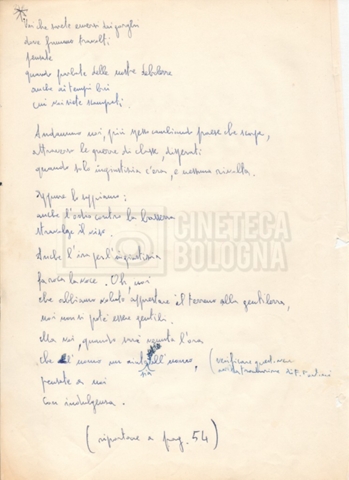 *
Voi che sarete emersi dai gorghi
dove fummo travolti
pensate
quando parlate delle nostre debolezze
anche ai tempi bui
cui voi siete scampati.
Andammo noi, più spesso cambiando paese che scarpe,
attraverso le guerre di classe, disperati
quando solo ingiustizia c'era, e nessuna rivolta.
Eppure lo sappiamo:
anche l'odio contro la bassezza
stravolge il viso.
Anche l'ira per l'ingiustizia
fa roca la voce. Oh, noi
che abbiamo voluto apprestare il terreno alla gentilezza,
noi non si poté essere gentili.
Ma voi, quando sarà venuta l'ora
che all'uomo un aiuto sia l'uomo,
(verificare
traduzione di F. Fortini)
pensate a noi
con indulgenza.
(riportare a pag. 54)
CINETECA
BOLOGNA